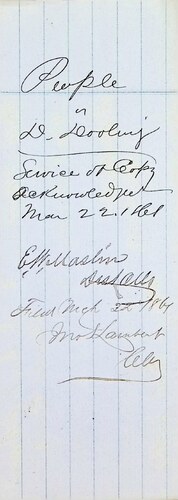 People
vs
D. Dooling
Service of Copy
acknowledged
Mar 22. 1861
E. W. Maslin
Dist Atty
Filed Mch 22 1861
Jno Lambert
Clk